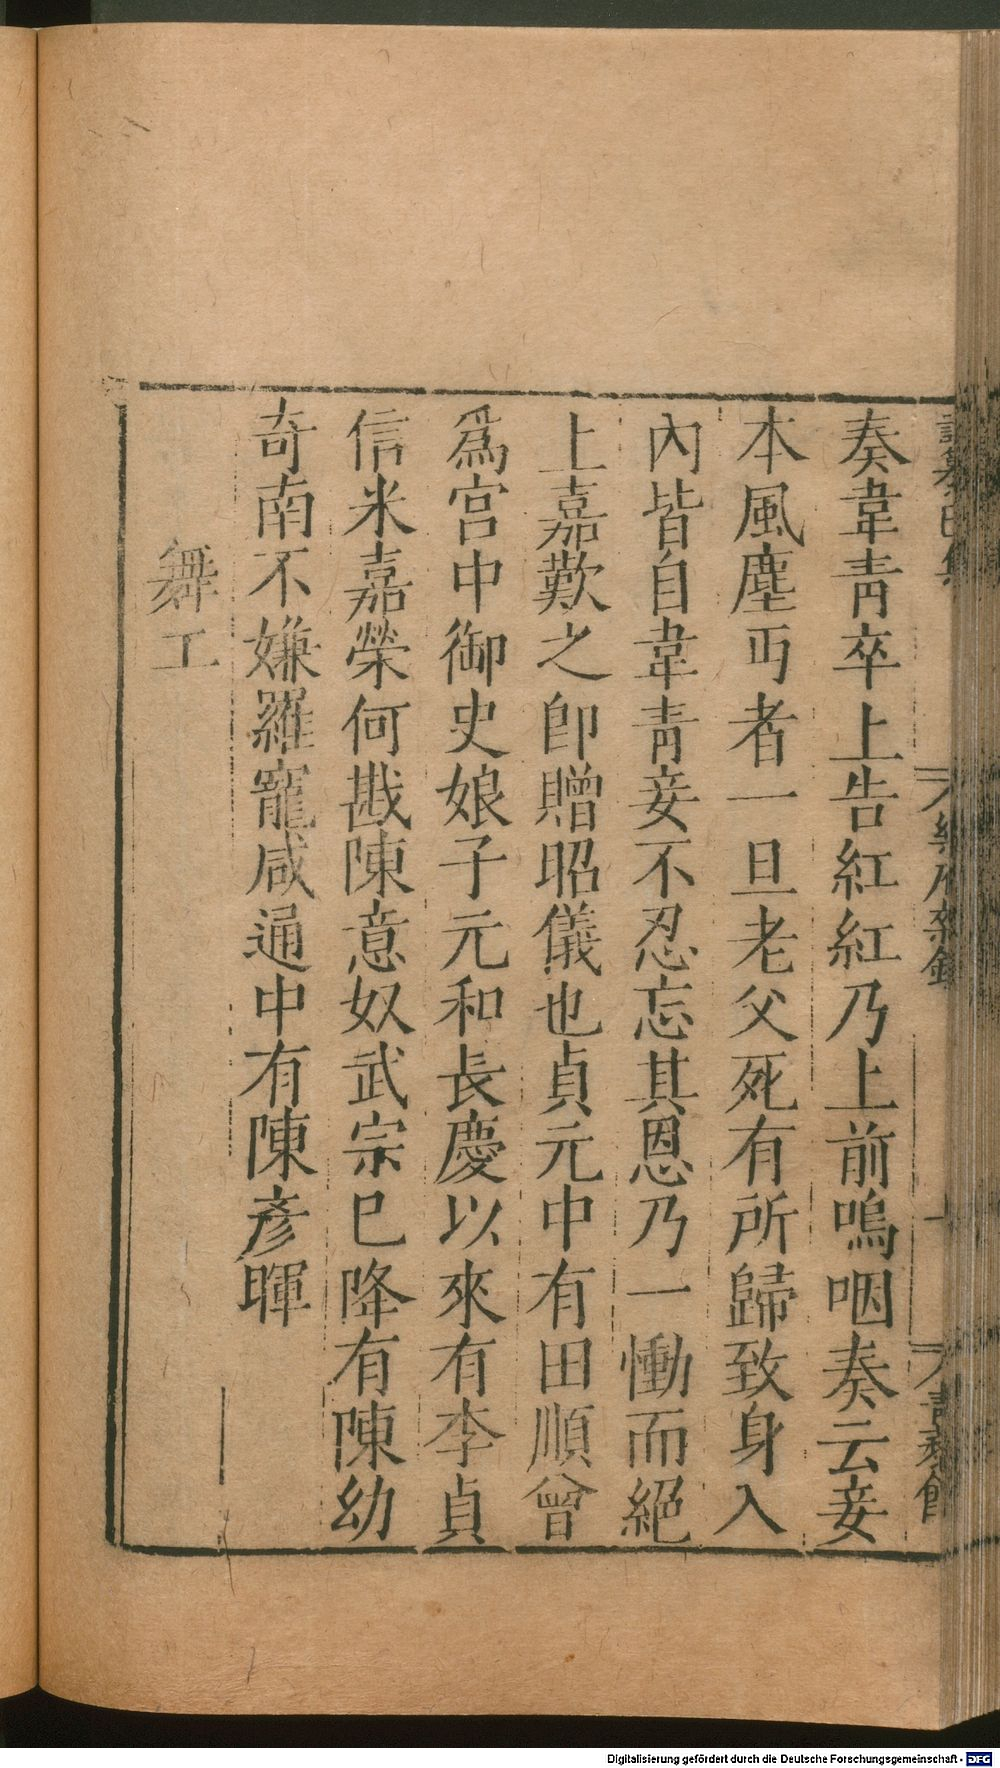 奏韋靑卒上告紅紅乃上前嗚咽奏云妾
本風塵丐者一旦老父死有所歸致身入
內皆自韋靑妾不忍忘其恩乃一慟而絕
上嘉歎之卽贈昭儀也貞元中有田順曾
爲宮中御史娘子元和長慶以來有李貞
信米嘉榮何戡陳意奴武宗巳降有陳幼
奇南不嫌羅寵咸通中有陳彥暉
舞工
Digitalisierung gefördert durch die Deutsche Forschungsgemeinschaft - DFG